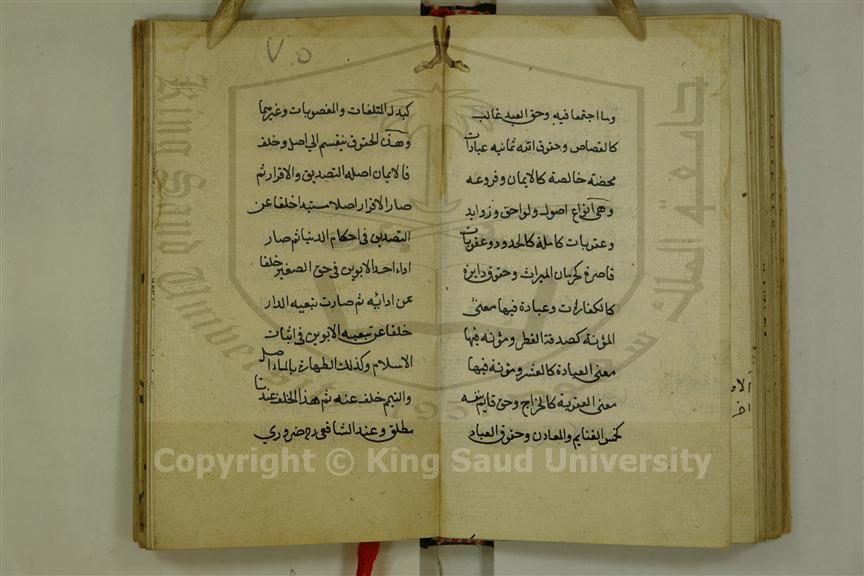 وما اجتمعا فيه وحق العبد غالب
كالقصاص وحقوق الله ثمانيه عبادات
محضة خالصة كالايمان وفروعه
وهي انواع اصول ولواحق وزوايد
وعقوبات كاملة كالحدود وعقوبات
قاصرة كحرمان الميراث وحقوق دايرة
كالكفارات وعبادة فيها معنى
المؤنة كصدقة الفطر ومؤنه فيها
معنى العبادة كالعشر ومؤنة فيها
معنى العقوبة كالخراج وحق قايم بنفسه
كخمس الغنايم والمعادن وحقوق العباد
٧.٥
كبدل المتلفات والمغصوبات وغيرهما
وهذه الحقوق تنقسم الي اصل وخلف
فالايمان اصله التصديق والاقرار ثم
صار الاقرار اصلا مستبدا خلفا عن
التصديق في احكام الدنيا ثم صار
اداء احد الابوين في حق الصغير خلفا
عن ادائه ثم صارت تبعيه الدار
خلفا عن تبعيه الابوين في اثبات
الاسلام وكذلك الطهارة بالماء اصل
والتيمم خلف عنه ثم هذا الخلف عندنا
مطلق وعند الشافعي ره ضروري
King Saud University
جامعة الملك سعود
1957
Copyright © King Saud University